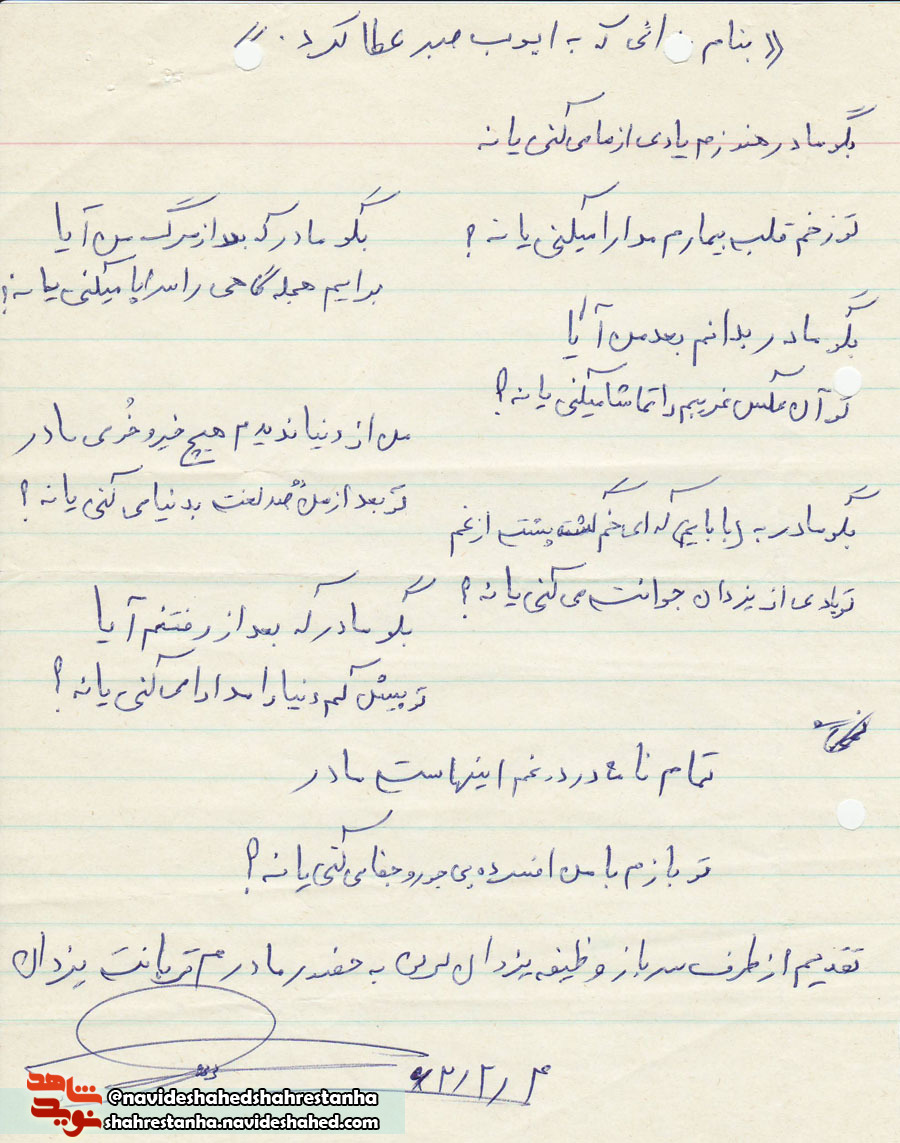 « بنام ائی که به ایوب صبر عطا کرد. »
بگو مادر هنوزم یادی از ما می کنی یا نه
تو زخم قلب بیمارم مدارا میکنی یا نه ؟
بگو مادر که بعد از مرگ من آیا
برایم حجله گاهی را سراپا میکنی یا نه ؟
بگو مادر بدانم بعد من آیا
تو آن عکس غریبم را تماشا میکنی یا نه ؟
من از دنیا ندیدم هیچ خیر و خُرمی مادر
تو بعد از من صد لعنت بدنیا می کنی یا نه ؟
بگو مادر به (بابایی) که ای خم گشته پشت از غم
تو یادی از یزدان جوانت می کنی یا نه ؟
بگو مادر که بعد از رفتنم آیا
تو پیش کم دنیا را مدارا می کنی یا نه ؟
تمام نامه درد و غم اینهاست مادر
تو بازم با من افسرده بی جور و جفا می کنی یا نه ؟
تقدیم از طرف سرباز وظیفه یزدان به حضور مادرم قربانت یزدان
۶۲/۲/۴
شاهد
نوید
@navideshahedshahrestanha
shahrestanha.navideshahed.com